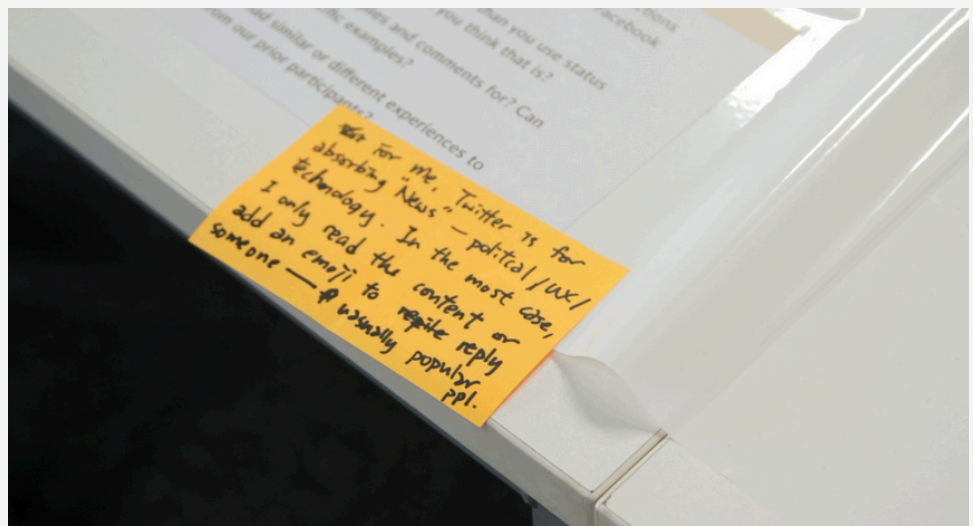 ctions
Facebook
than you use status
you think that is?
es and comments for? Can
fic examples?
ad similar or different experiences to
om our prior participants?
For me, Twitter is for
absorbing "News" – political/UX/
technology. In the most case,
I only read the content or
add an emoji to reply
someone → uasually popular
ppl.